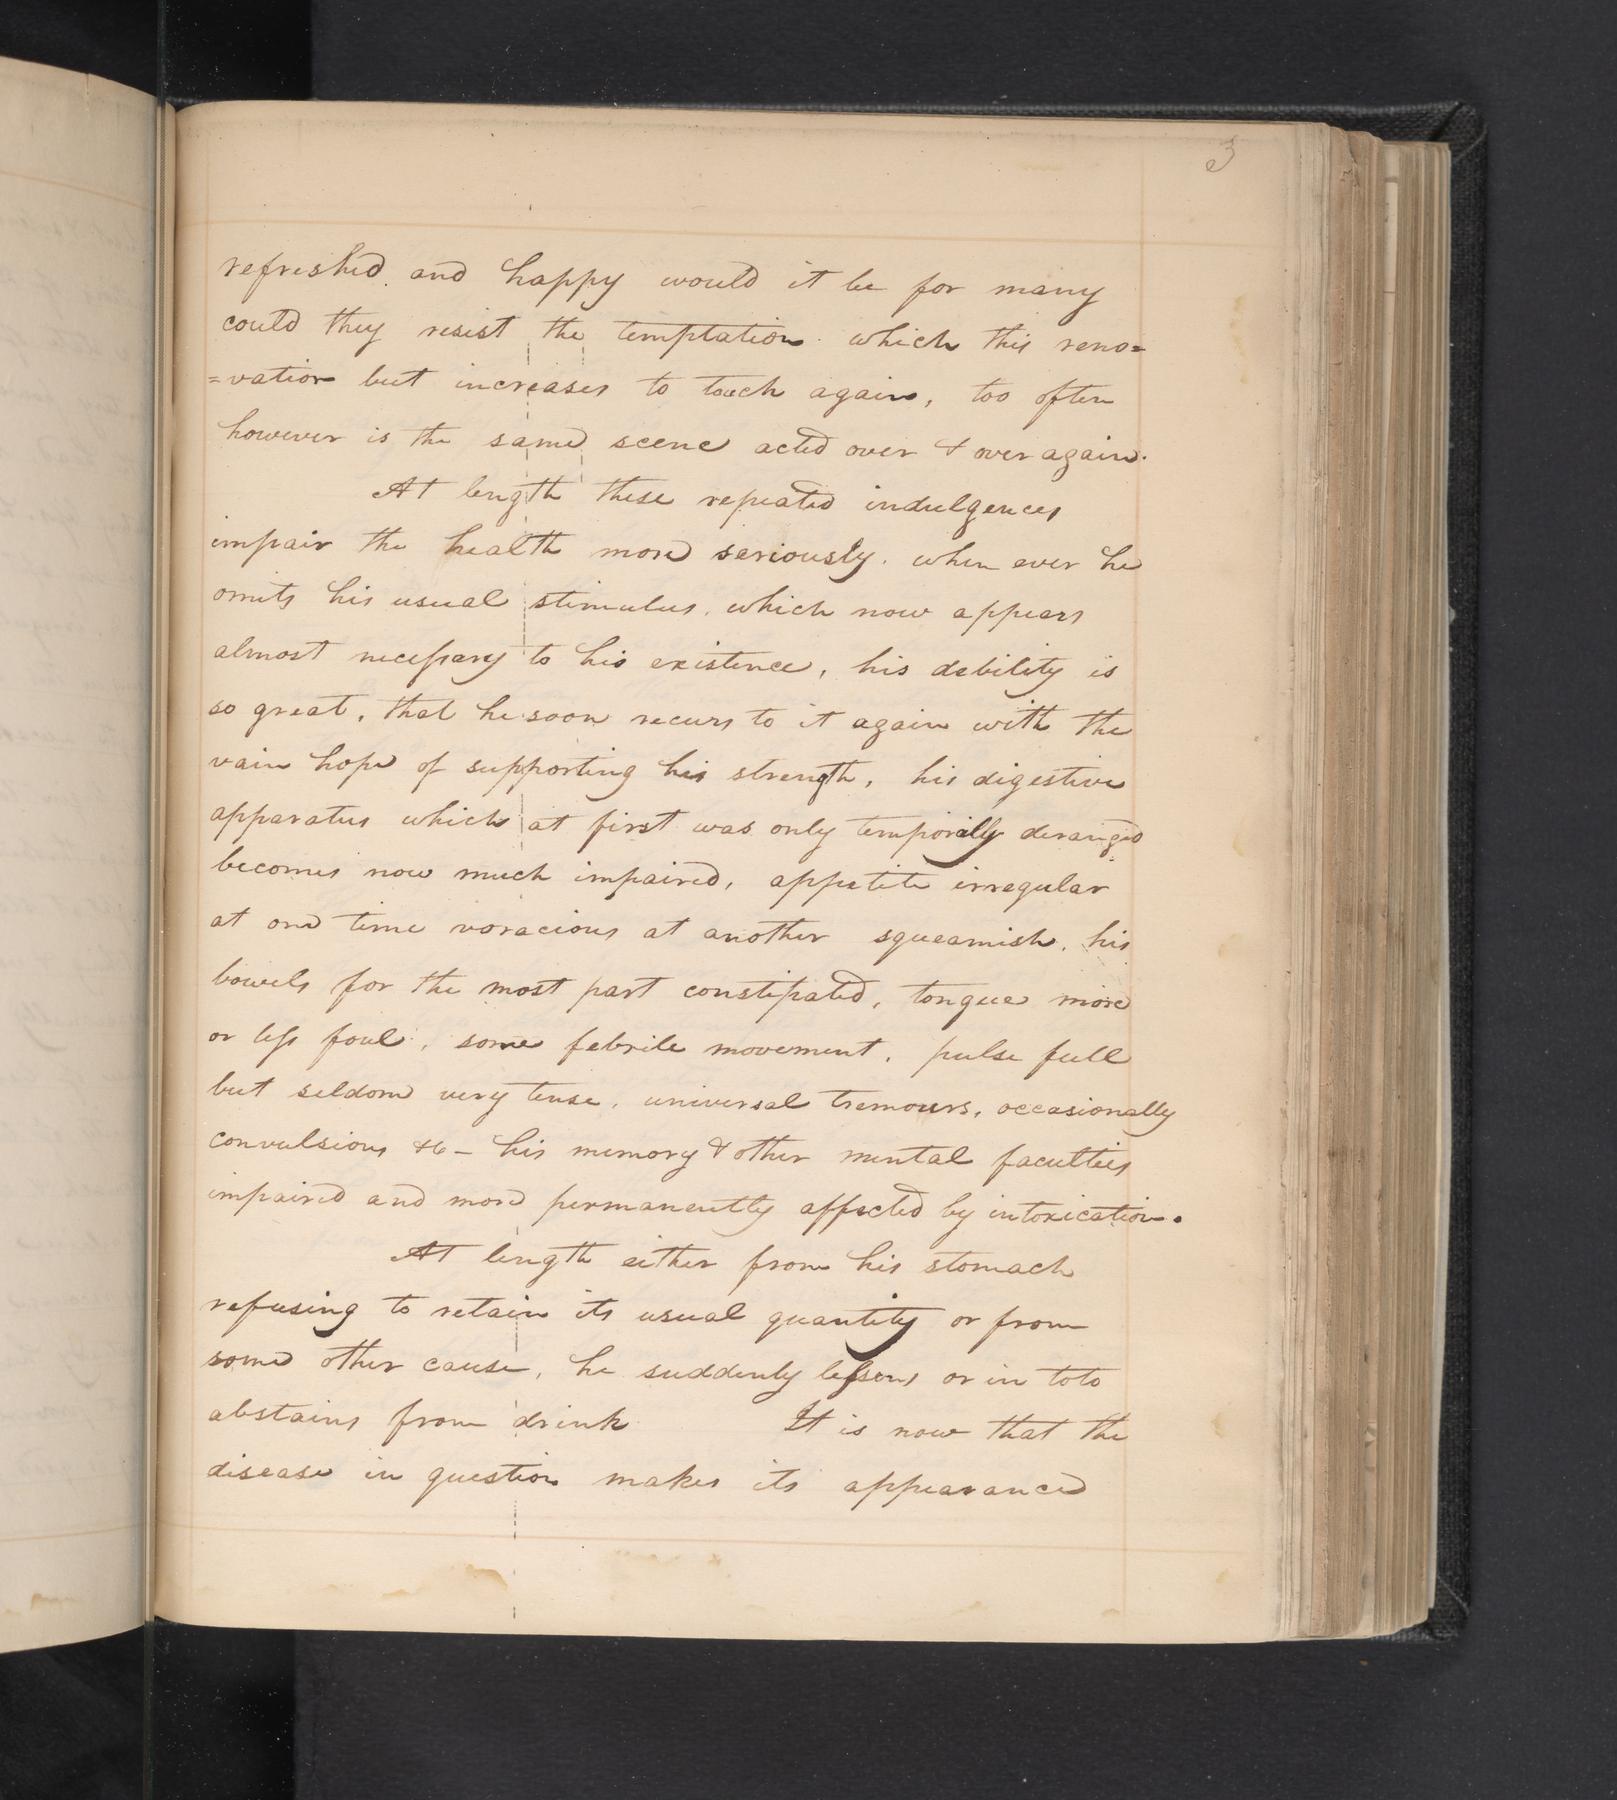 3
refreshed. and happy would it be for many
could they resist the temptation which this reno=
=vation but increases to touch again, too often
however is the same scene acted over & over again.
At length these repeated indulgences
impair the health more seriously. when ever he
omits his usual stimulus. which now appears
almost necessary to his existence, his debility is
so great, that he soon recurs to it again with the
vain hope of supporting his strength, his digestive
apparatus which at first was only temporally deranged
becomes now much impaired, appetite irregular
at one time voracious at another squeamish. his
bowels for the most part constipated, tongue more
or less foul, some febrile movement, pulse full
but seldom very tense, universal tremours, occasionally
convulsions &c – his memory & other mental faculties
impaired and more permanently affected by intoxication.
At length either from his stomach
refusing to retain its usual quantity or from
some other cause, he suddenly lessens or in toto
abstains from drink It is now that the
disease in question makes its appearance